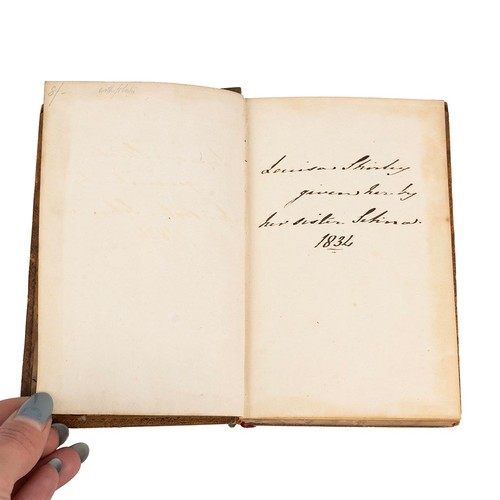 3/-
Louisa Shirley
given her by
her sister Selina.
1834